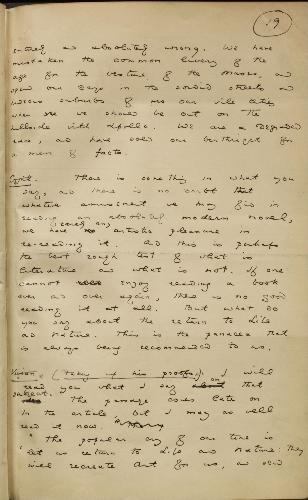 19
as absolutely wrong. We have
mistaken the common livery of the
age for the vesture of the Muses, and
spend our days in the sordid streets and
hideous suburbs of our vile cities
when we should be out on the
hillside with Apollo. We are a degraded
race, and have sold our birthright for
a mess of facts.
Cyril. There is something in what you
say, and there is no doubt that
whatever amusement we may find in
reading an absolutely modern novel,
we have rarely any artistic pleasure in
re-reading it. And this is perhaps
the best rough test of what is
literature and what is not. If one
cannot enjoy reading a book
over and over again, there is no good
reading it at all. But what do
you say about the return to Life
and Nature. This is the panacea that
is always being recommended to us.
Vivian (taking up his proofs). I will
read you what I say on that
subject. The passage comes later on
in the article but I may as well
read it now.
"The popular cry of our time is
'let us return to Life and Nature: they
will recreate Art for us, and send